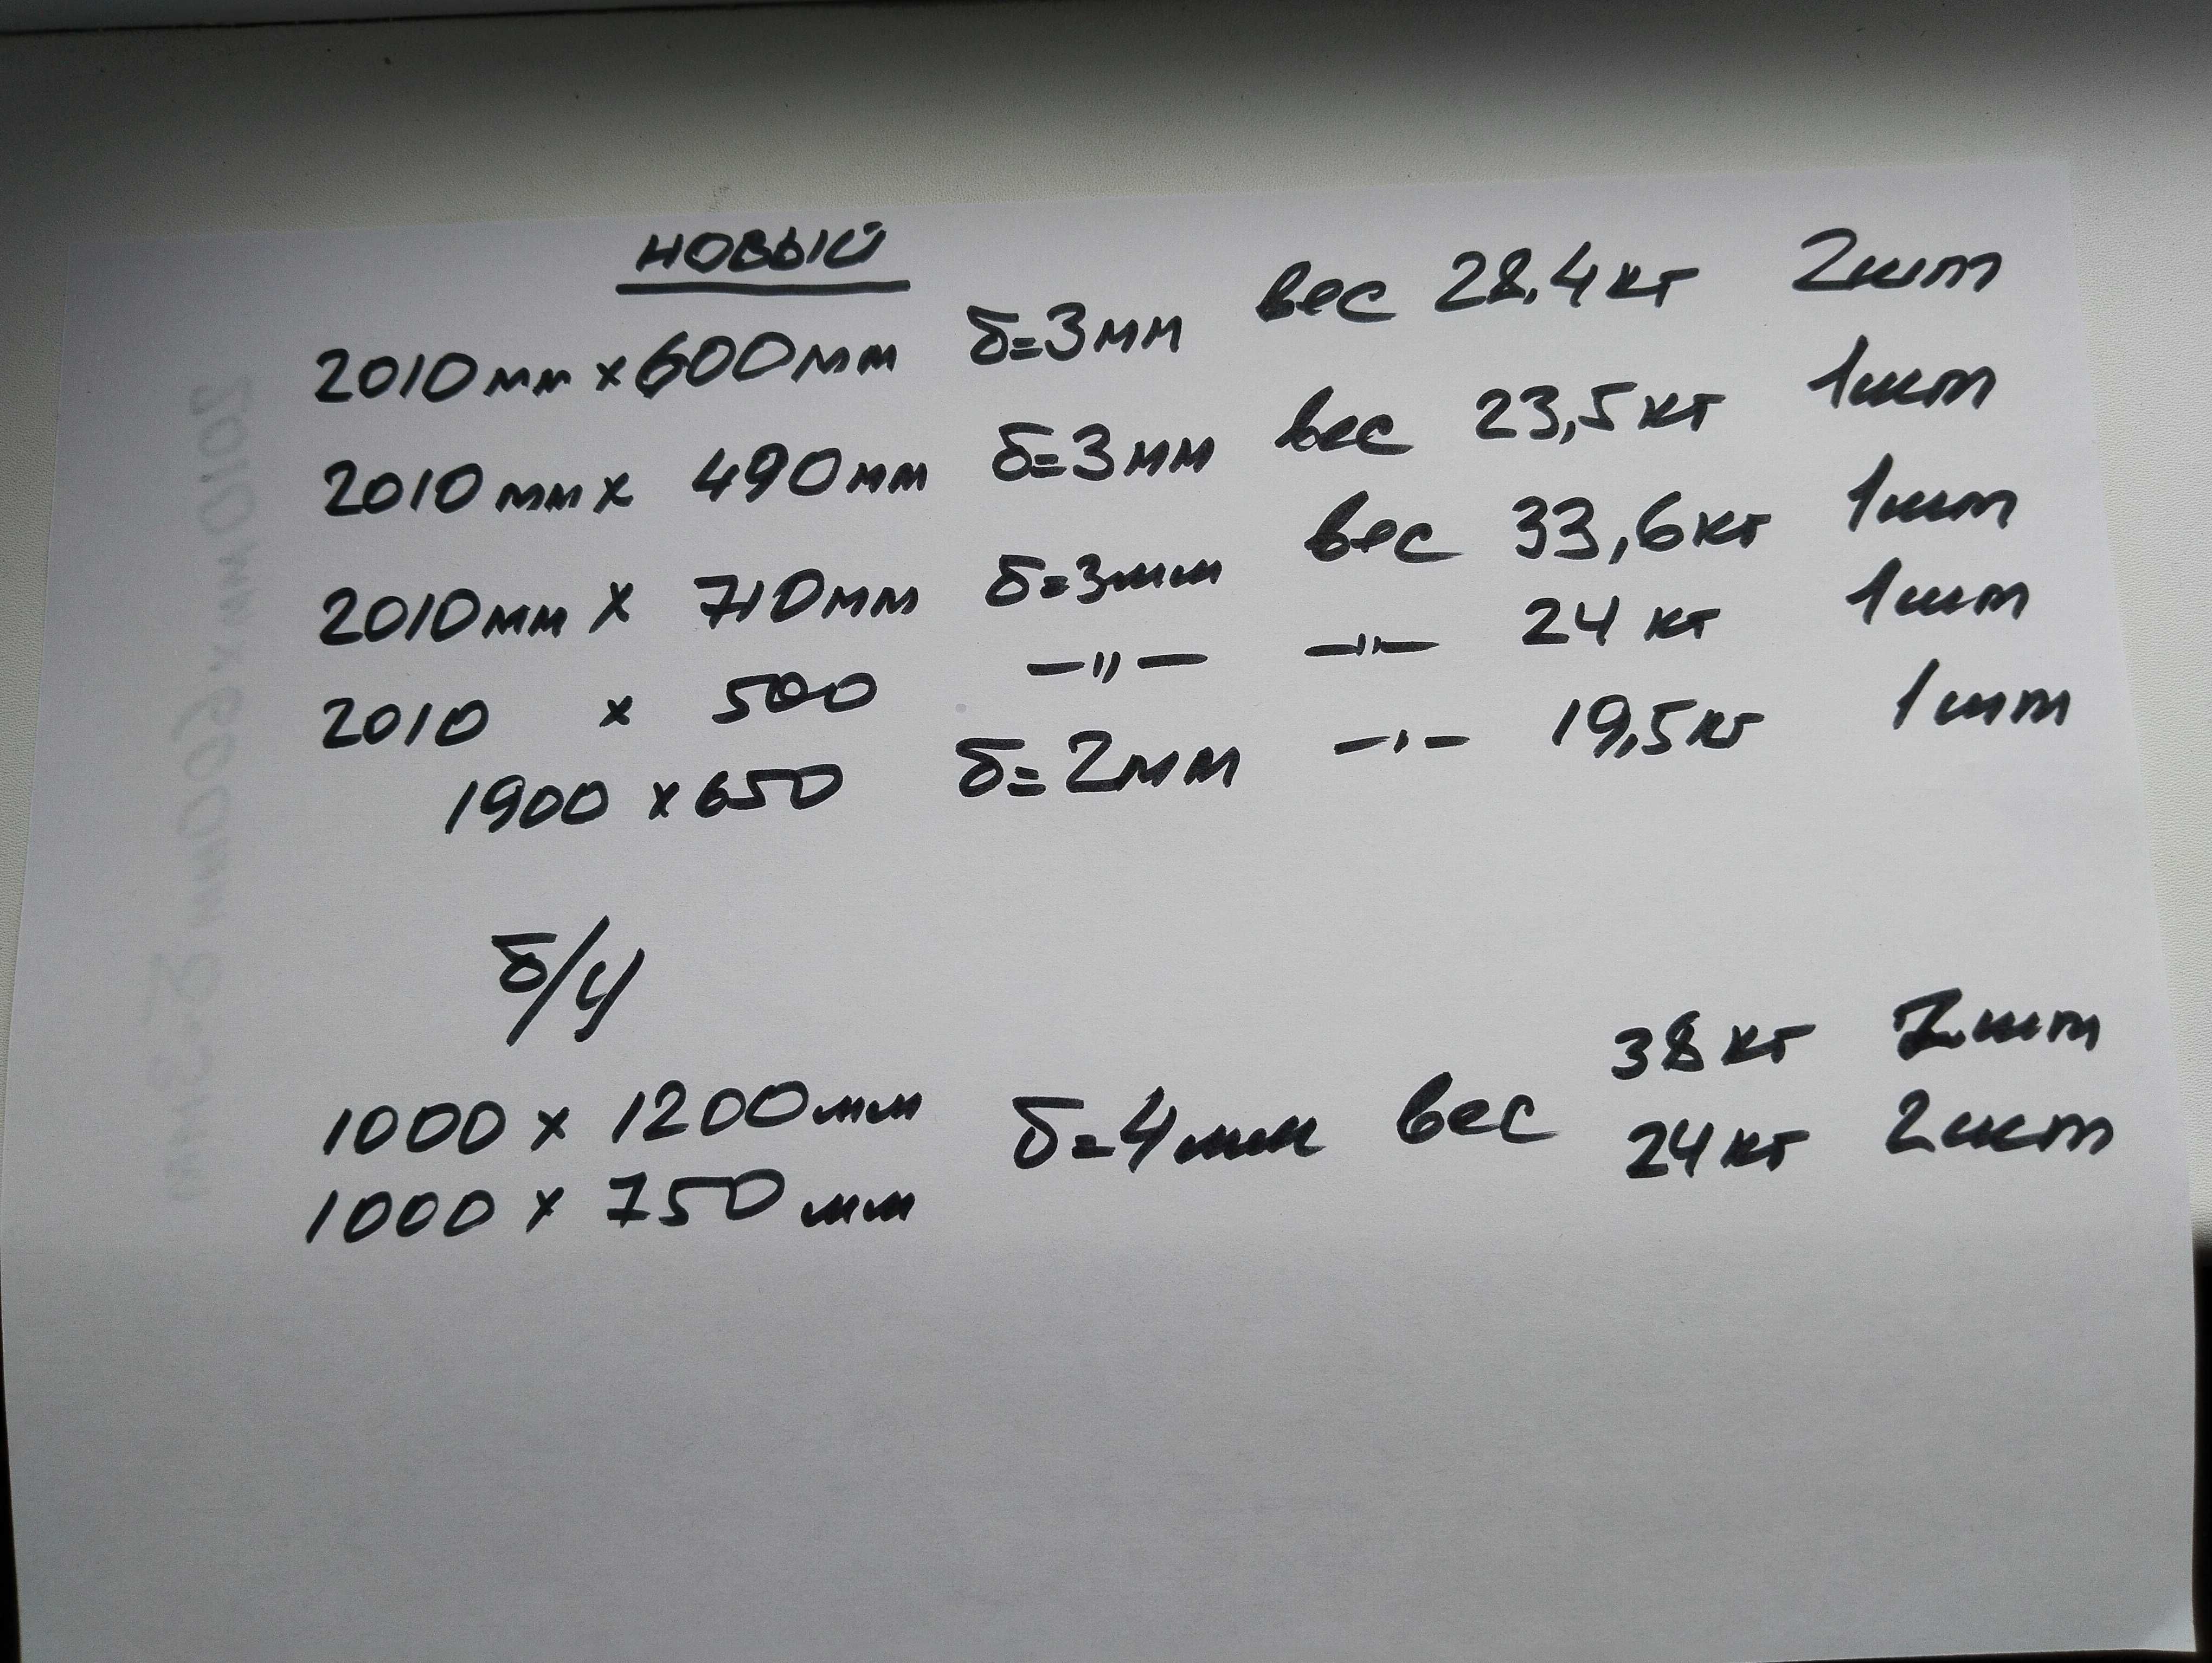 новый
2010мм х 600мм δ=3мм вес 28,4кг 2шт
2010мм х 490мм δ=3мм вес 23,5кг 1шт
2010мм х 710мм δ=3мм вес 33,6кг 1шт
2010 х 500 —〃— —〃— 24 кг 1шт
1900 х 650 δ=2мм —〃— 19,5кг 1шт
б/у
1000 х 1200мм δ=4мм вес 38 кг шт
1000 х 750 мм 24 кг 2шт